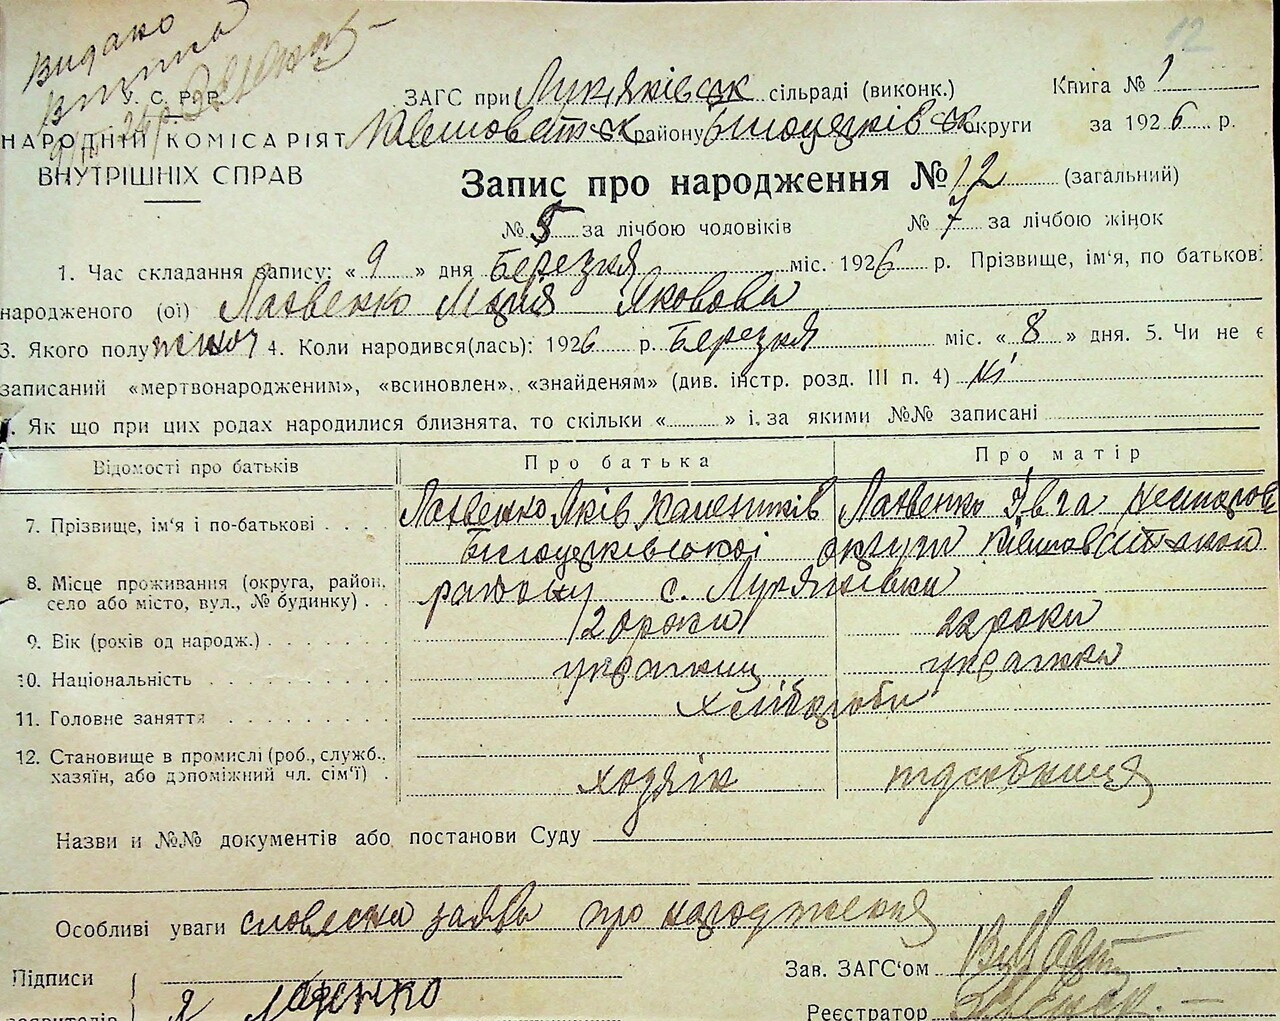 Видано
виписа
12
У. С. Р. Р.
ЗАГС при Лукянівск сільраді (виконк.) Книга № 1
НАРОДНІЙ КОМІСАРІЯТ району Білоцерківск округи за 1926 р.
ВНУТРІШНІХ СПРАВ
Запис про народження № 12 (загальний)
№ 5 за лічбою чоловіків № 7 за лічбою жінок
1. Час складання запису: « 9 » дня Березня міс. 1926 р. Прізвище, ім'я, по батькові
народженого (ої) Лазвенко Марія Яковова
3. Якого полу жіноч 4. Коли народився(лась): 1926 р. Березня міс. « 8 » дня. 5. Чи не є
записаний «мертвонародженим», «всиновлен», «знайденям» (див. інстр. розд. III п. 4) Ні
Як що при цих родах народилися близнята, то скільки « » і за якими №№ записані
Відомості про батьків Про батька Про матір
7. Прізвище, ім'я і по-батькові Лазвенко Яків Лазвенко Івга
Білоцерківської округи
8. Місце проживання (округа, район,
село або місто, вул., № будинку) району с. Лукянівки
9. Вік (років од народж.) 20 роки 22 роки
10. Національність українц українка
11. Головне заняття хлібороби
12. Становище в промислі (роб., служб.,
хазяїн, або допоміжний чл. сім'ї) хозяїн підсобниця
Назви и №№ документів або постанови Суду
Особливі уваги словесна заява про народження
Підписи Зав. ЗАГС'ом
заявителів Я Реєстратор